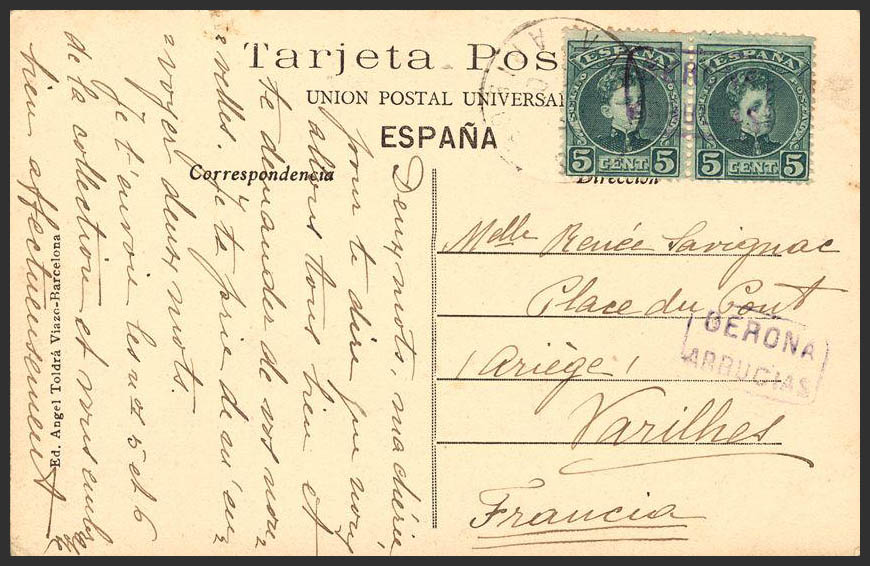 Tarjeta Pos
UNION POSTAL UNIVERSAL
ESPAÑA
Correspondencia
Dirección
ESPAÑA
5 CENT. 5
ESPAÑA
5 CENT. 5
Deux mots, ma chérie,
pour te dire que nous
allons tous bien et
te demander de vos nou=
=velles. Je te prie de m'en=
=voyer deux mots.
Je t'envoie les nos 5 et 6
de la collection et vous embrasse
bien affectueusement
Melle Renée Savignac
Place du Pont
(Ariège)
Varilhes
Francia
GERONA
ARRUCIAS
Ed. Angel Toldrá Viazo-Barcelona